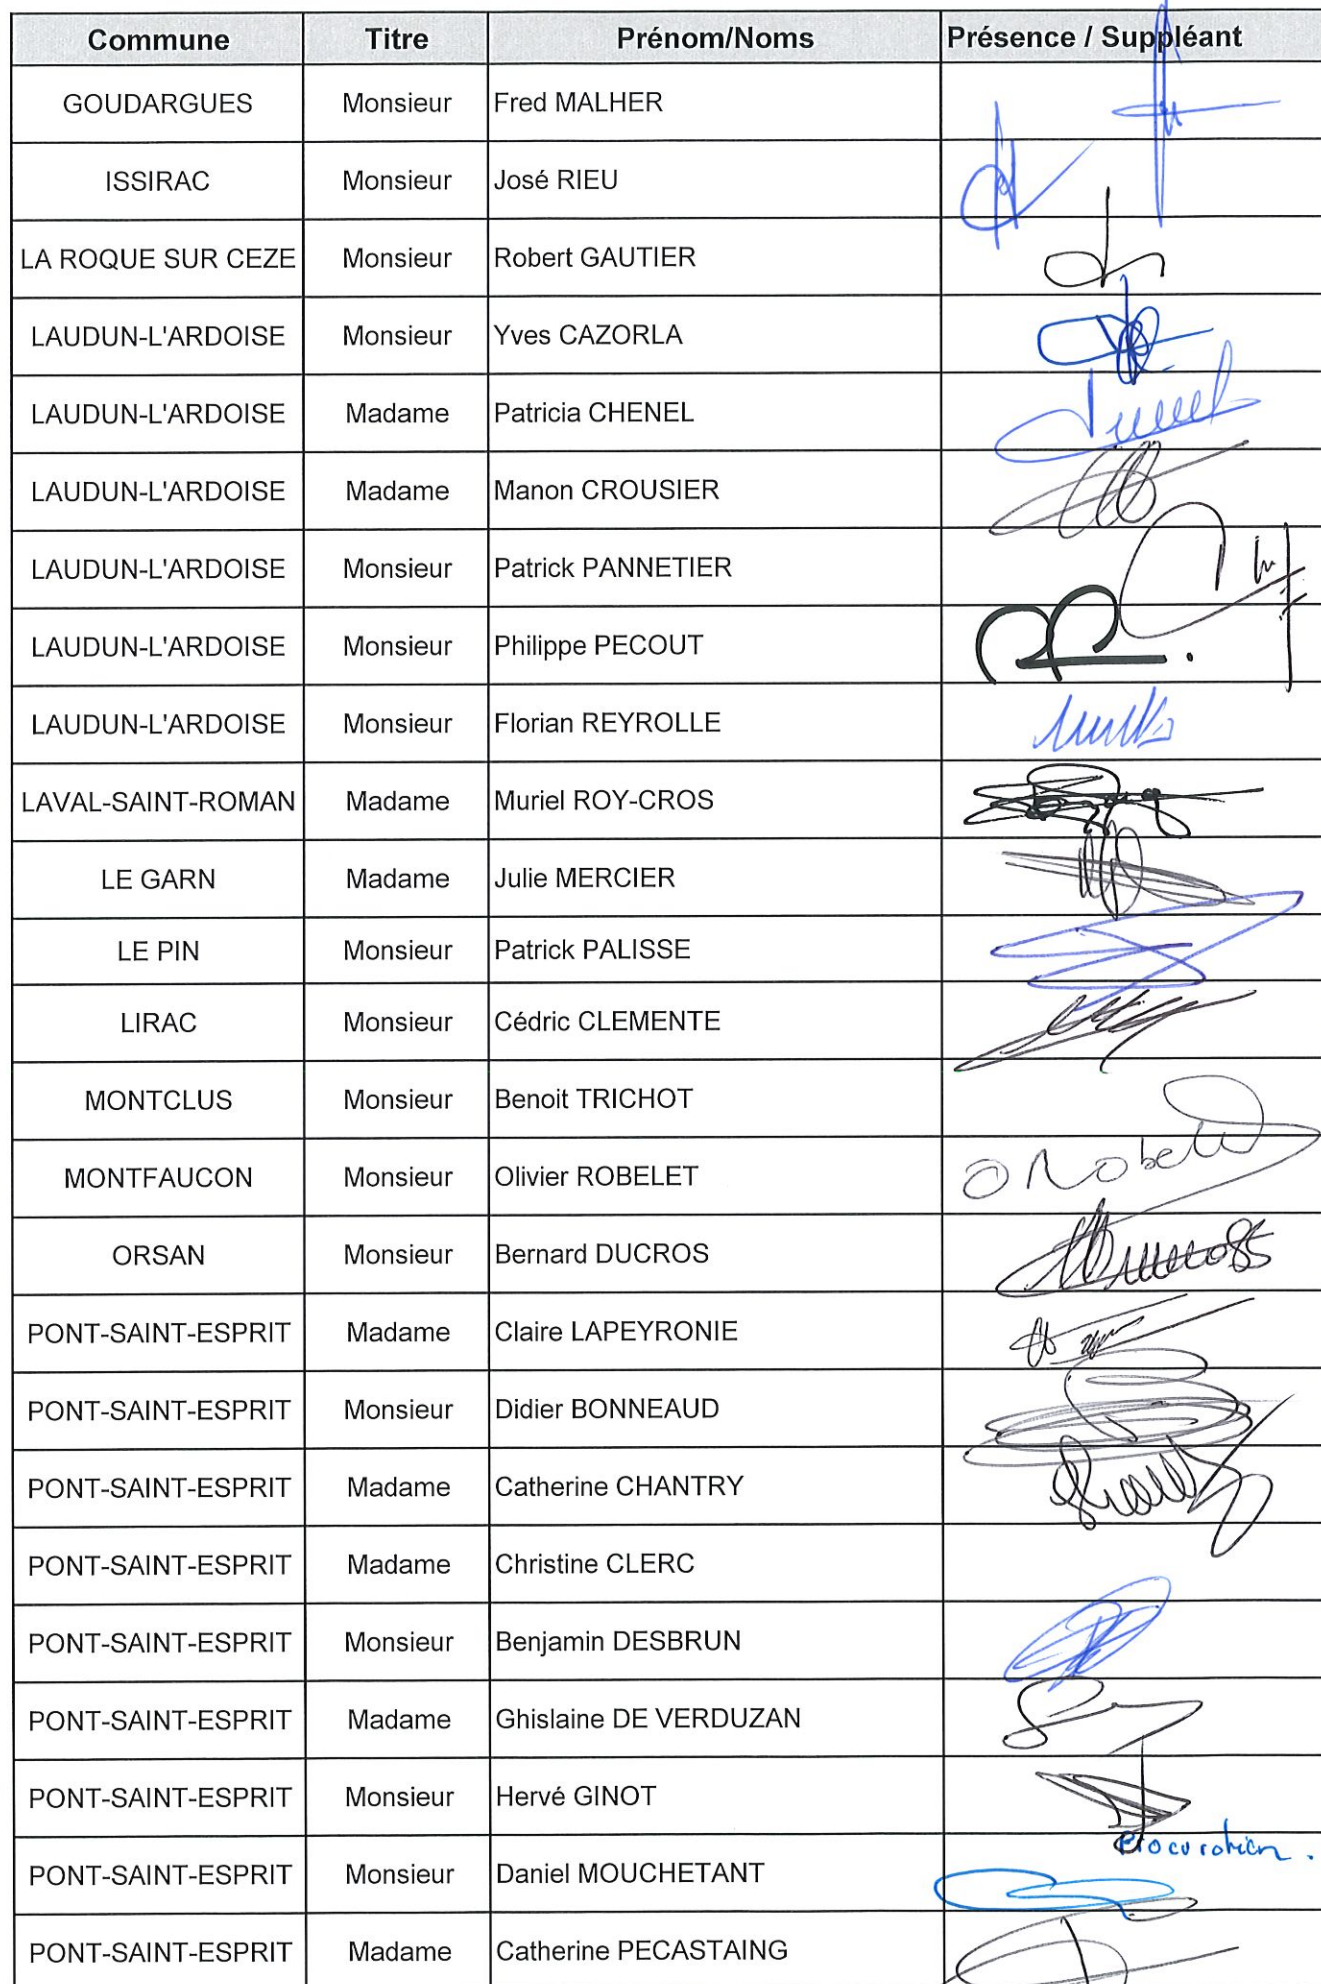 Commune Titre Prénom/Noms Présence / Suppléant
GOUDARGUES Monsieur Fred MALHER
ISSIRAC Monsieur José RIEU
LA ROQUE SUR CEZE Monsieur Robert GAUTIER
LAUDUN-L'ARDOISE Monsieur Yves CAZORLA
LAUDUN-L'ARDOISE Madame Patricia CHENEL
LAUDUN-L'ARDOISE Madame Manon CROUSIER
LAUDUN-L'ARDOISE Monsieur Patrick PANNETIER
LAUDUN-L'ARDOISE Monsieur Philippe PECOUT
LAUDUN-L'ARDOISE Monsieur Florian REYROLLE
LAVAL-SAINT-ROMAN Madame Muriel ROY-CROS
LE GARN Madame Julie MERCIER
LE PIN Monsieur Patrick PALISSE
LIRAC Monsieur Cédric CLEMENTE
MONTCLUS Monsieur Benoit TRICHOT
MONTFAUCON Monsieur Olivier ROBELET
ORSAN Monsieur Bernard DUCROS
PONT-SAINT-ESPRIT Madame Claire LAPEYRONIE
PONT-SAINT-ESPRIT Monsieur Didier BONNEAUD
PONT-SAINT-ESPRIT Madame Catherine CHANTRY
PONT-SAINT-ESPRIT Madame Christine CLERC
PONT-SAINT-ESPRIT Monsieur Benjamin DESBRUN
PONT-SAINT-ESPRIT Madame Ghislaine DE VERDUZAN
PONT-SAINT-ESPRIT Monsieur Hervé GINOT
PONT-SAINT-ESPRIT Monsieur Daniel MOUCHETANT Procuration.
PONT-SAINT-ESPRIT Madame Catherine PECASTAING